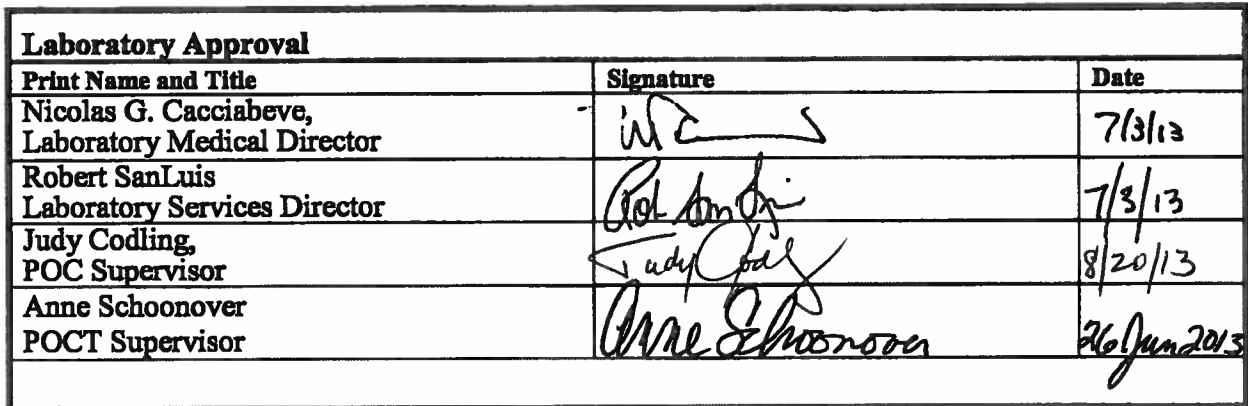 Laboratory Approval
Print Name and Title Signature Date
Nicolas G. Cacciabeve,
Laboratory Medical Director 7/3/13
Robert SanLuis
Laboratory Services Director Rob San Luis 7/3/13
Judy Codling,
POC Supervisor Judy Codling 8/20/13
Anne Schoonover
POCT Supervisor Anne Schoonover 26 Jun 2013